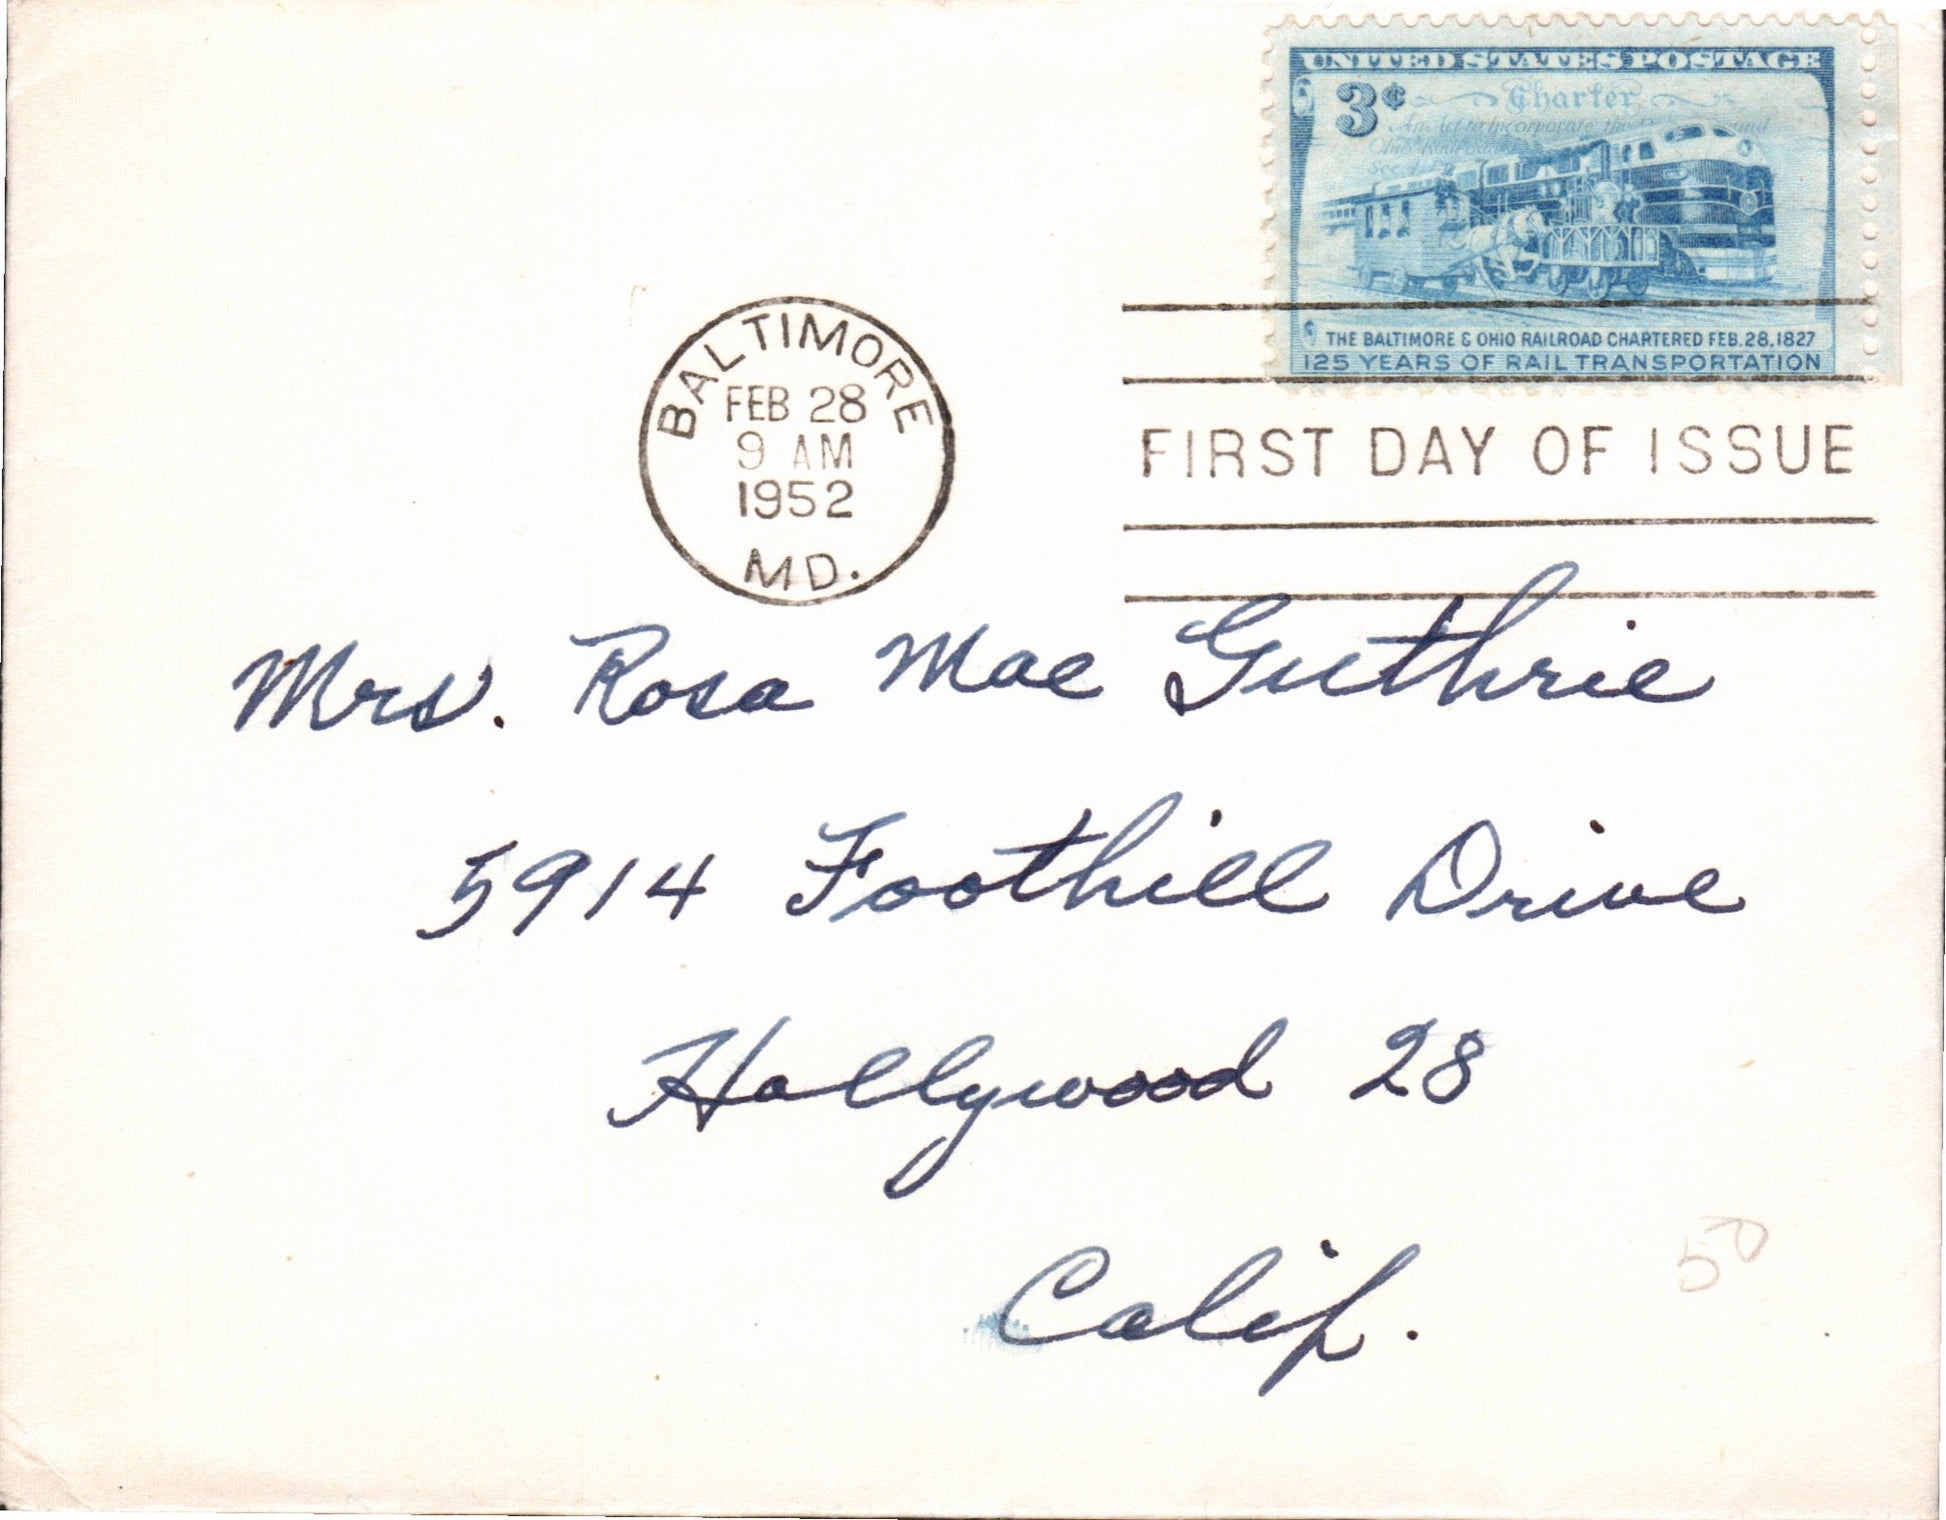 UNITED STATES POSTAGE
3¢
Charter
An Act to incorporate the
Ohio Rail
THE BALTIMORE & OHIO RAILROAD CHARTERED FEB. 28, 1827
125 YEARS OF RAIL TRANSPORTATION
BALTIMORE
FEB 28
9 AM
1952
MD.
FIRST DAY OF ISSUE
Mrs. Rosa Mae Guthrie
5914 Foothill Drive
Hollywood 28
Calif.
50